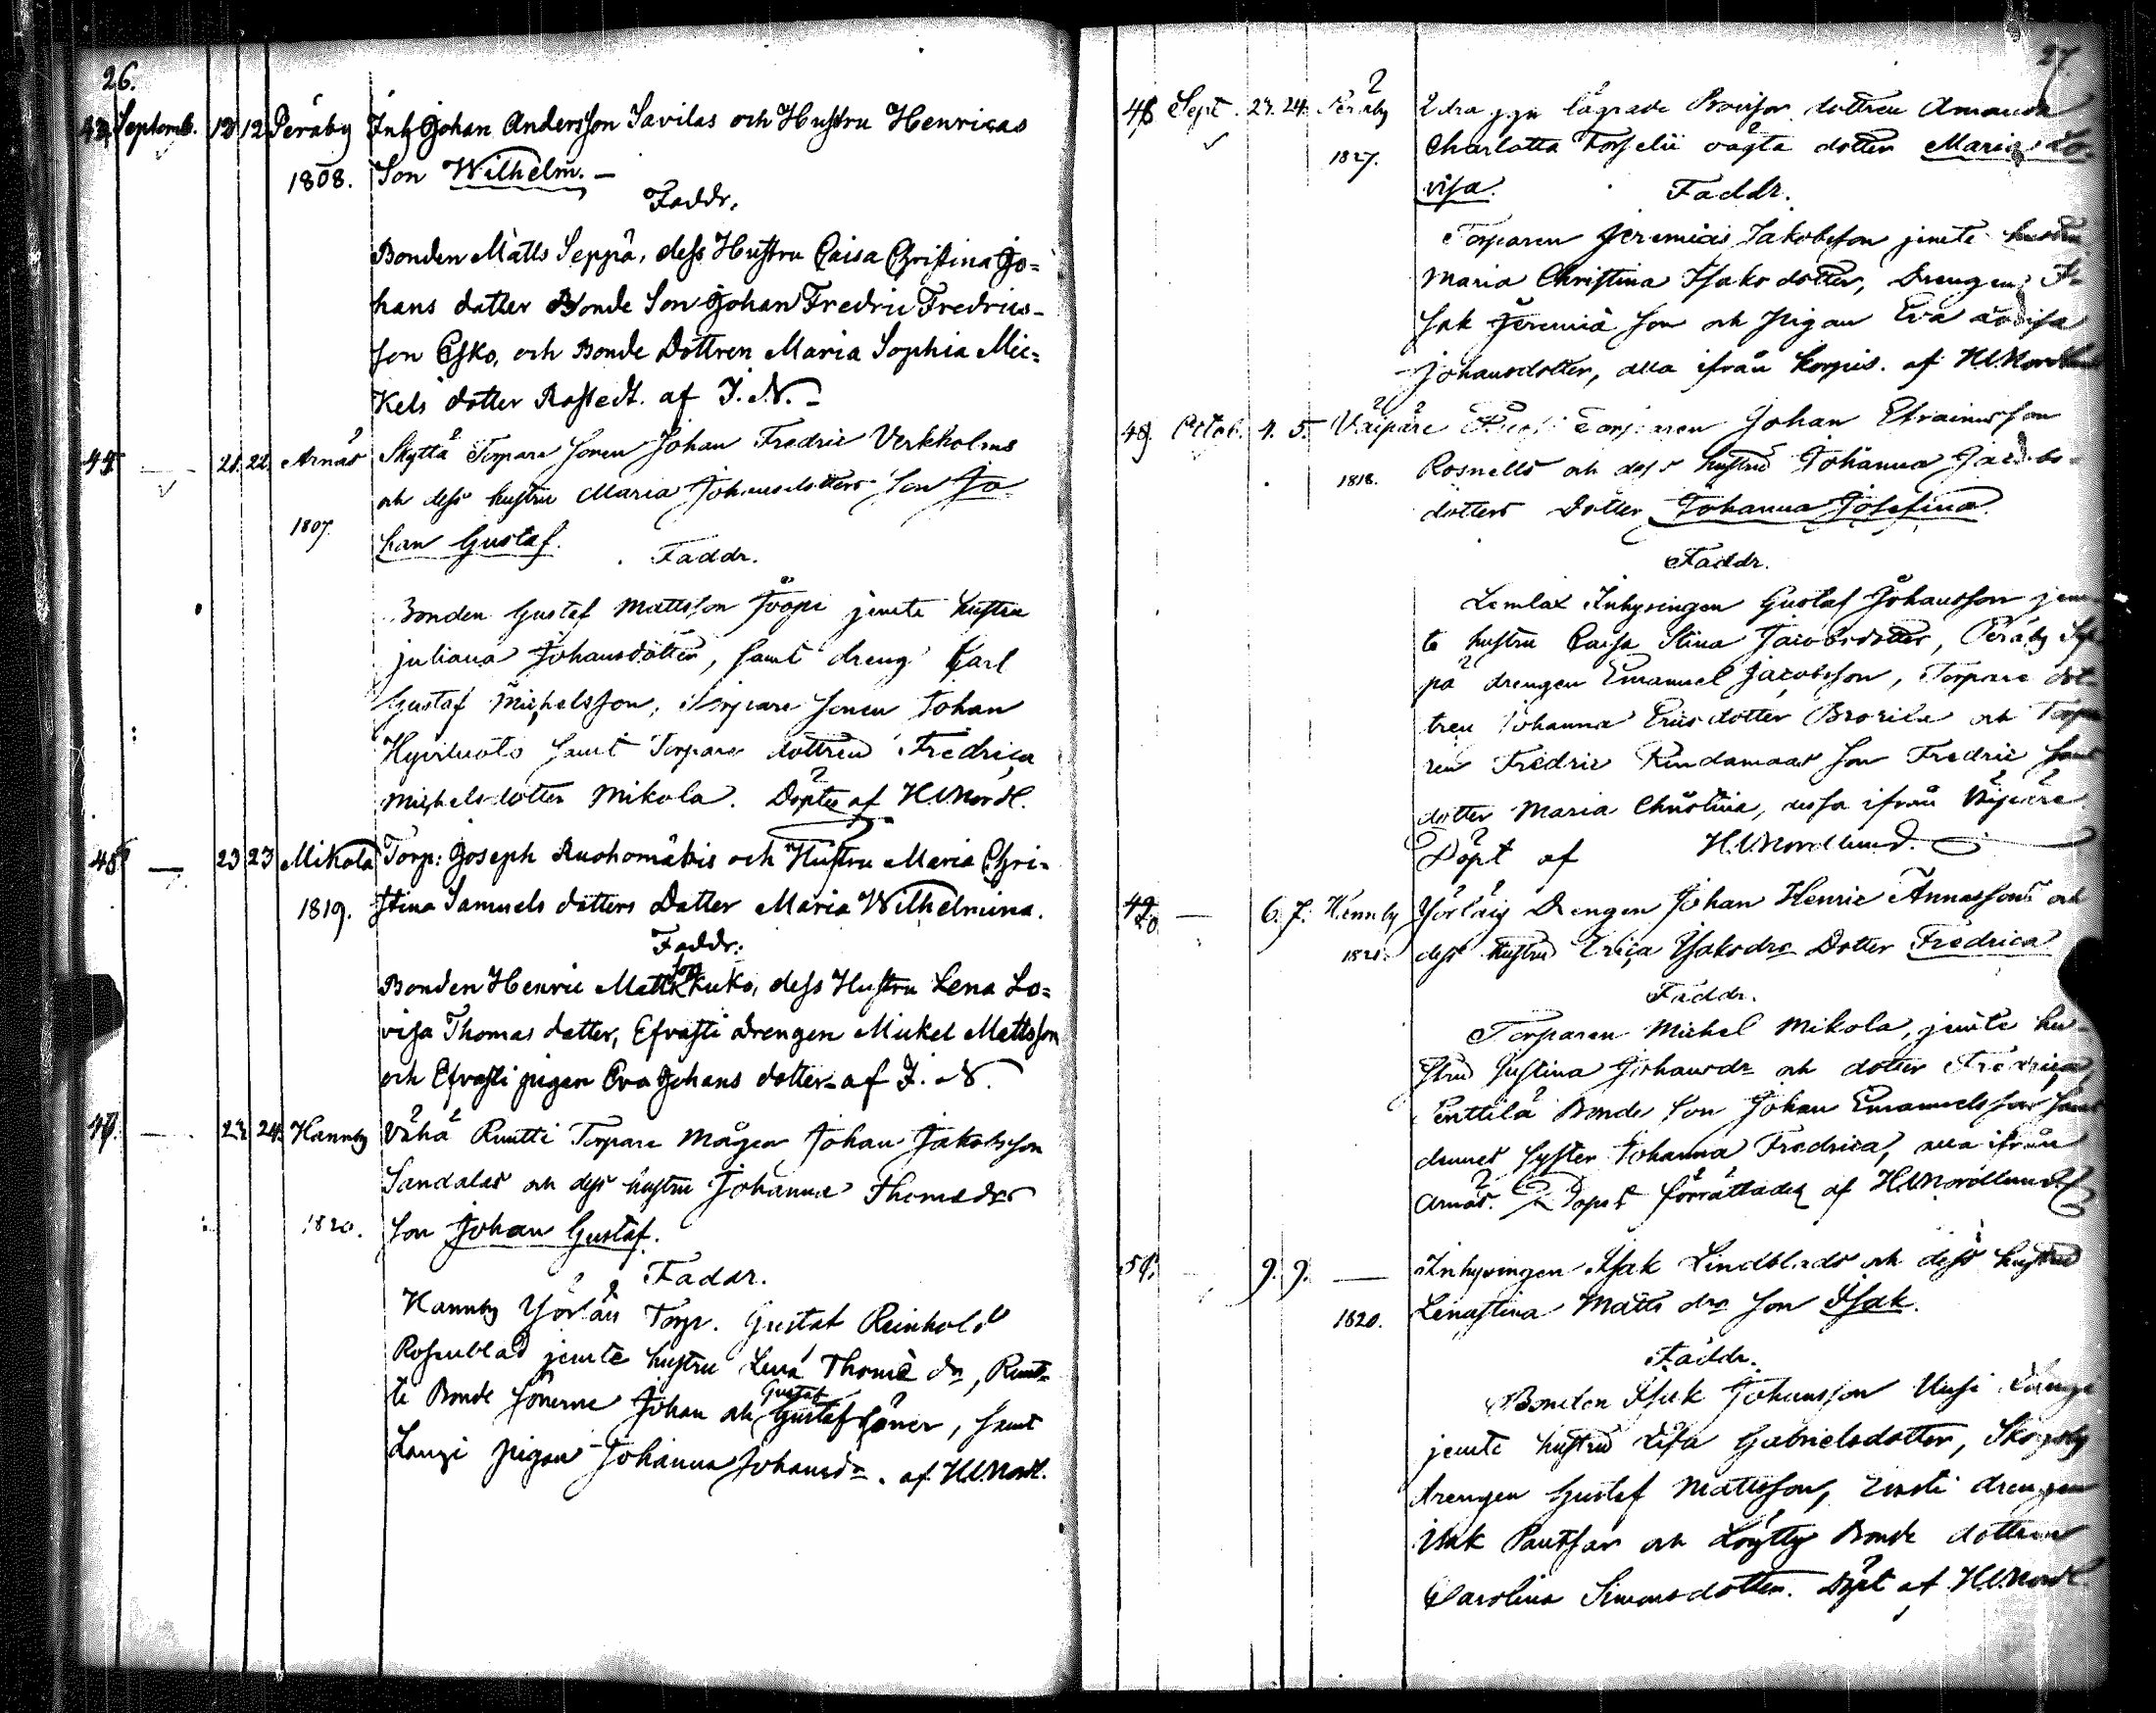 26.
43. Septemb. 12 12 Peräby Inh. Johan Andersson Savilas och Hustru Henricas
1808. Son Wilhelm. —
Faddr.
Bonden Matts Seppä, dess Hustru Caisa Christina Jo=
hans dotter Bonde Son Johan Fredric Fredrics-
son Esko, och Bonde Dottren Maria Sophia Mic=
kels dotter Rostedt. af J. N. —
44 — 21. 22. Arnäs Skyttä Torpare Sonen Johan Fredric Verkholms
och dess hustru Maria Johansdotters Son Jo
1807. han Gustaf.
Faddr.
Bonden Gustaf Mattsson Jöopi jemte hustru
Juliana Johansdotter, samt dreng Carl
Gustaf Michelsson, Torpare Sonen Johan
samt Torpare dottren Fredrica
Michelsdotter Mikola. Döptes af H.U.Nordl.
45 — 23 23 Mikola Torp: Joseph Ruohomäkis och Hustru Maria Chri-
1819. stina Samuels dotters Dotter Maria Wilhelmina.
Faddr:
Bonden Henric Mattsson Kuko, dess Hustru Lena Lo=
visa Thomas dotter, Efrasti drengen Mickel Mattsson
och Efrasti pigan Eva Johans dotter. af J. N.
— 23. 24. Hannby Vähä Runtti Torpare Mågen Johan Jakobsson
Sandalas och dess hustru Johanna Thomædrs
1820. Son Johan Gustaf.
Faddr.
Hannby Yörläis Torp. Gustaf Reinhold
Rosenblad jemte hustru Lena Thomæ dr, Runt=
te Bonde Sönerne Johan och Gustaf Gustafssöner, samt
Laugi pigan Johanna Johansdr. af H.U.Nordl.
27.
48 Sept. 23. 24. Peräby 2dra ggn lägrade dottren Amanda
1827. Charlotta Forselii oägta dotter Maria Lo-
visa.
Faddr.
Torparen Jeremias Jakobsson jemte hustru
Maria Christina Isaks dotter, Drengen I-
sak Jeremiæ son och pigan Eva Lovisa
Johansdotter, alla ifrån Korpis. af H.U.Nordlund
49. Octob. 4. 5. Väipäre Torparen Johan Efraimsson
1818. Rosnells och dess hustru Johanna Jacobs-
dotters Dotter Johanna Josefina.
Faddr.
Lemlax Inhysingen Gustaf Johansson jem
te hustru Caisa Stina Jacobsdotter, Peräby Sep
pä drengen Emanuel Jacobsson, Torpare dot-
tren Johanna Ericsdotter Brorila och Torpa
ren Fredric Rindamaas Son Fredric samt
dotter Maria Christina, dessa ifrån Väipäre
Döpt af H.U.Nordlund.
— 6. 7. Hannby Yörläis Drengen Johan Henric Annassons och
1821. dess hustru Erica Isaksdrs Dotter Fredrica
Faddr.
Torparen Michel Mikola, jemte hu-
stru Justina Johansdr och dotter Fredrica,
Penttilä Bonde Son Johan Emanuelsson samt
dennes syster Johanna Fredrica, alla ifrån
Arnäs. Dopet förrättades af H.U.Nordlund
51. — 9. 9. — Inhysingen Isak Lindblads och dess hustru
1820. Lenastina Matts drs Son Isak.
Faddr.
Bonden Isak Johansson Uusi Laugi
jemte hustru Lisa Gabrielsdotter, Skogsby
drengen Gustaf Mattsson, drengen
Isak och Löytty Bonde dottren
Carolina Simonsdotter. Döpt af H.U.Nordl.